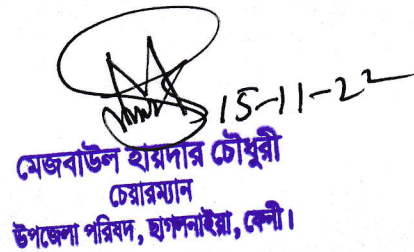 15-11-22
মেজবাউল হায়দার চৌধুরী
চেয়ারম্যান
উপজেলা পরিষদ, ছাগলনাইয়া, ফেনী।